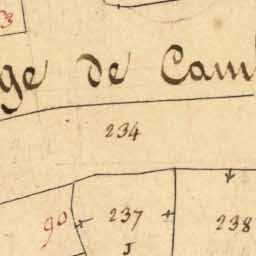 ge de Cam
234
90 237 238
J